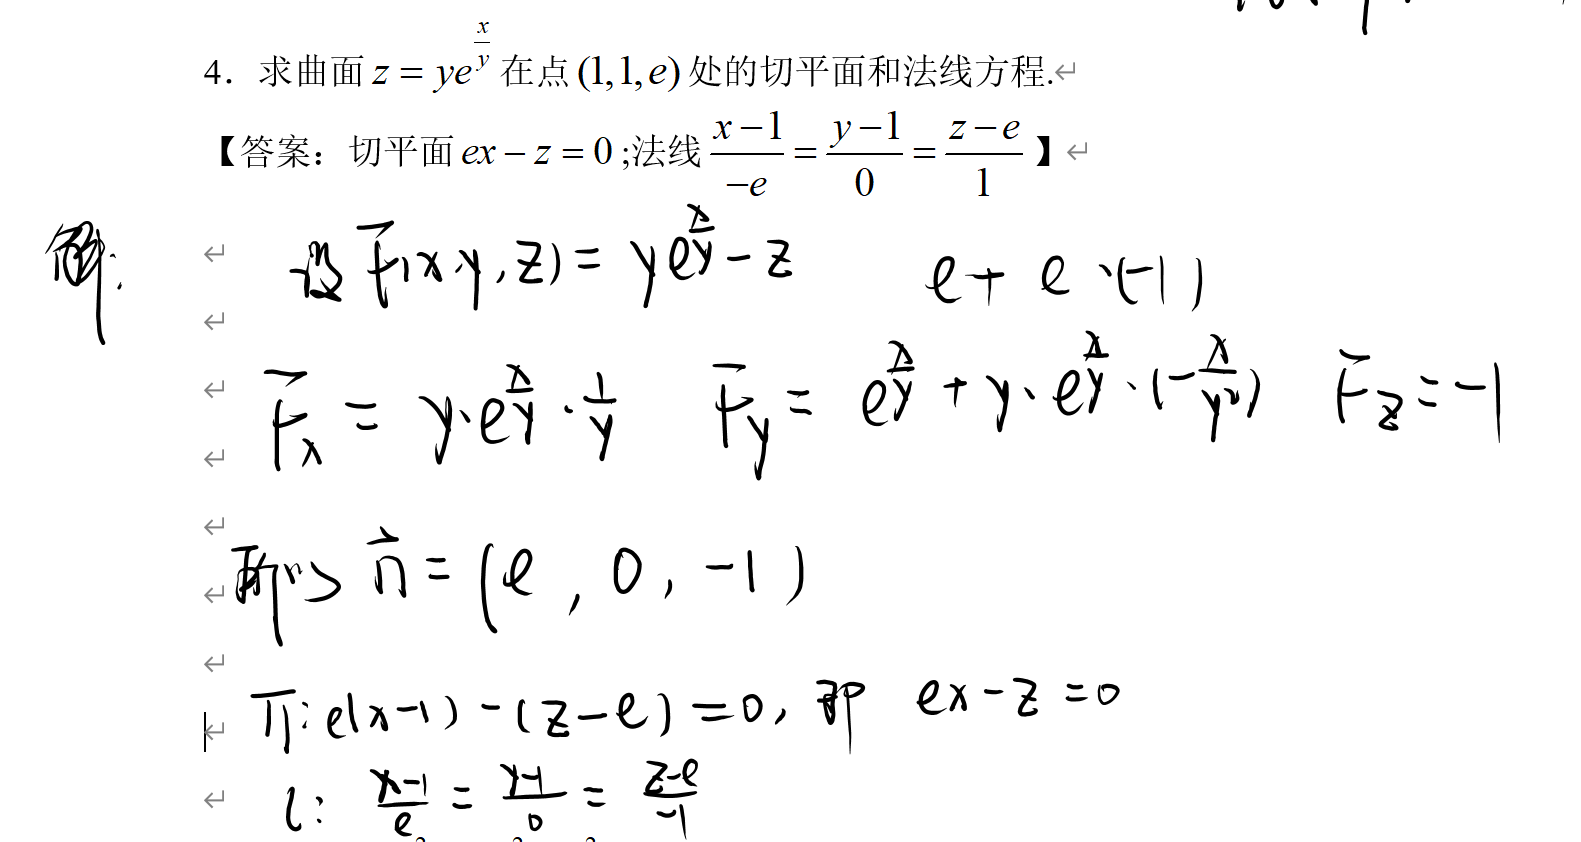 4. 求曲面 z = ye^{x/y} 在点 (1,1,e) 处的切平面和法线方程.
【答案：切平面 ex − z = 0 ;法线 (x−1)/(−e) = (y−1)/0 = (z−e)/1 】
解: 设 F(x,y,z) = ye^{x/y} − z e + e·(−1)
F_x = y·e^{x/y}·1/y F_y = e^{x/y} + y·e^{x/y}·(−x/y²) F_z = −1
所以 n⃗ = (e, 0, −1)
π: e(x−1) − (z−e) = 0, 即 ex − z = 0
l: (x−1)/e = (y−1)/0 = (z−e)/−1